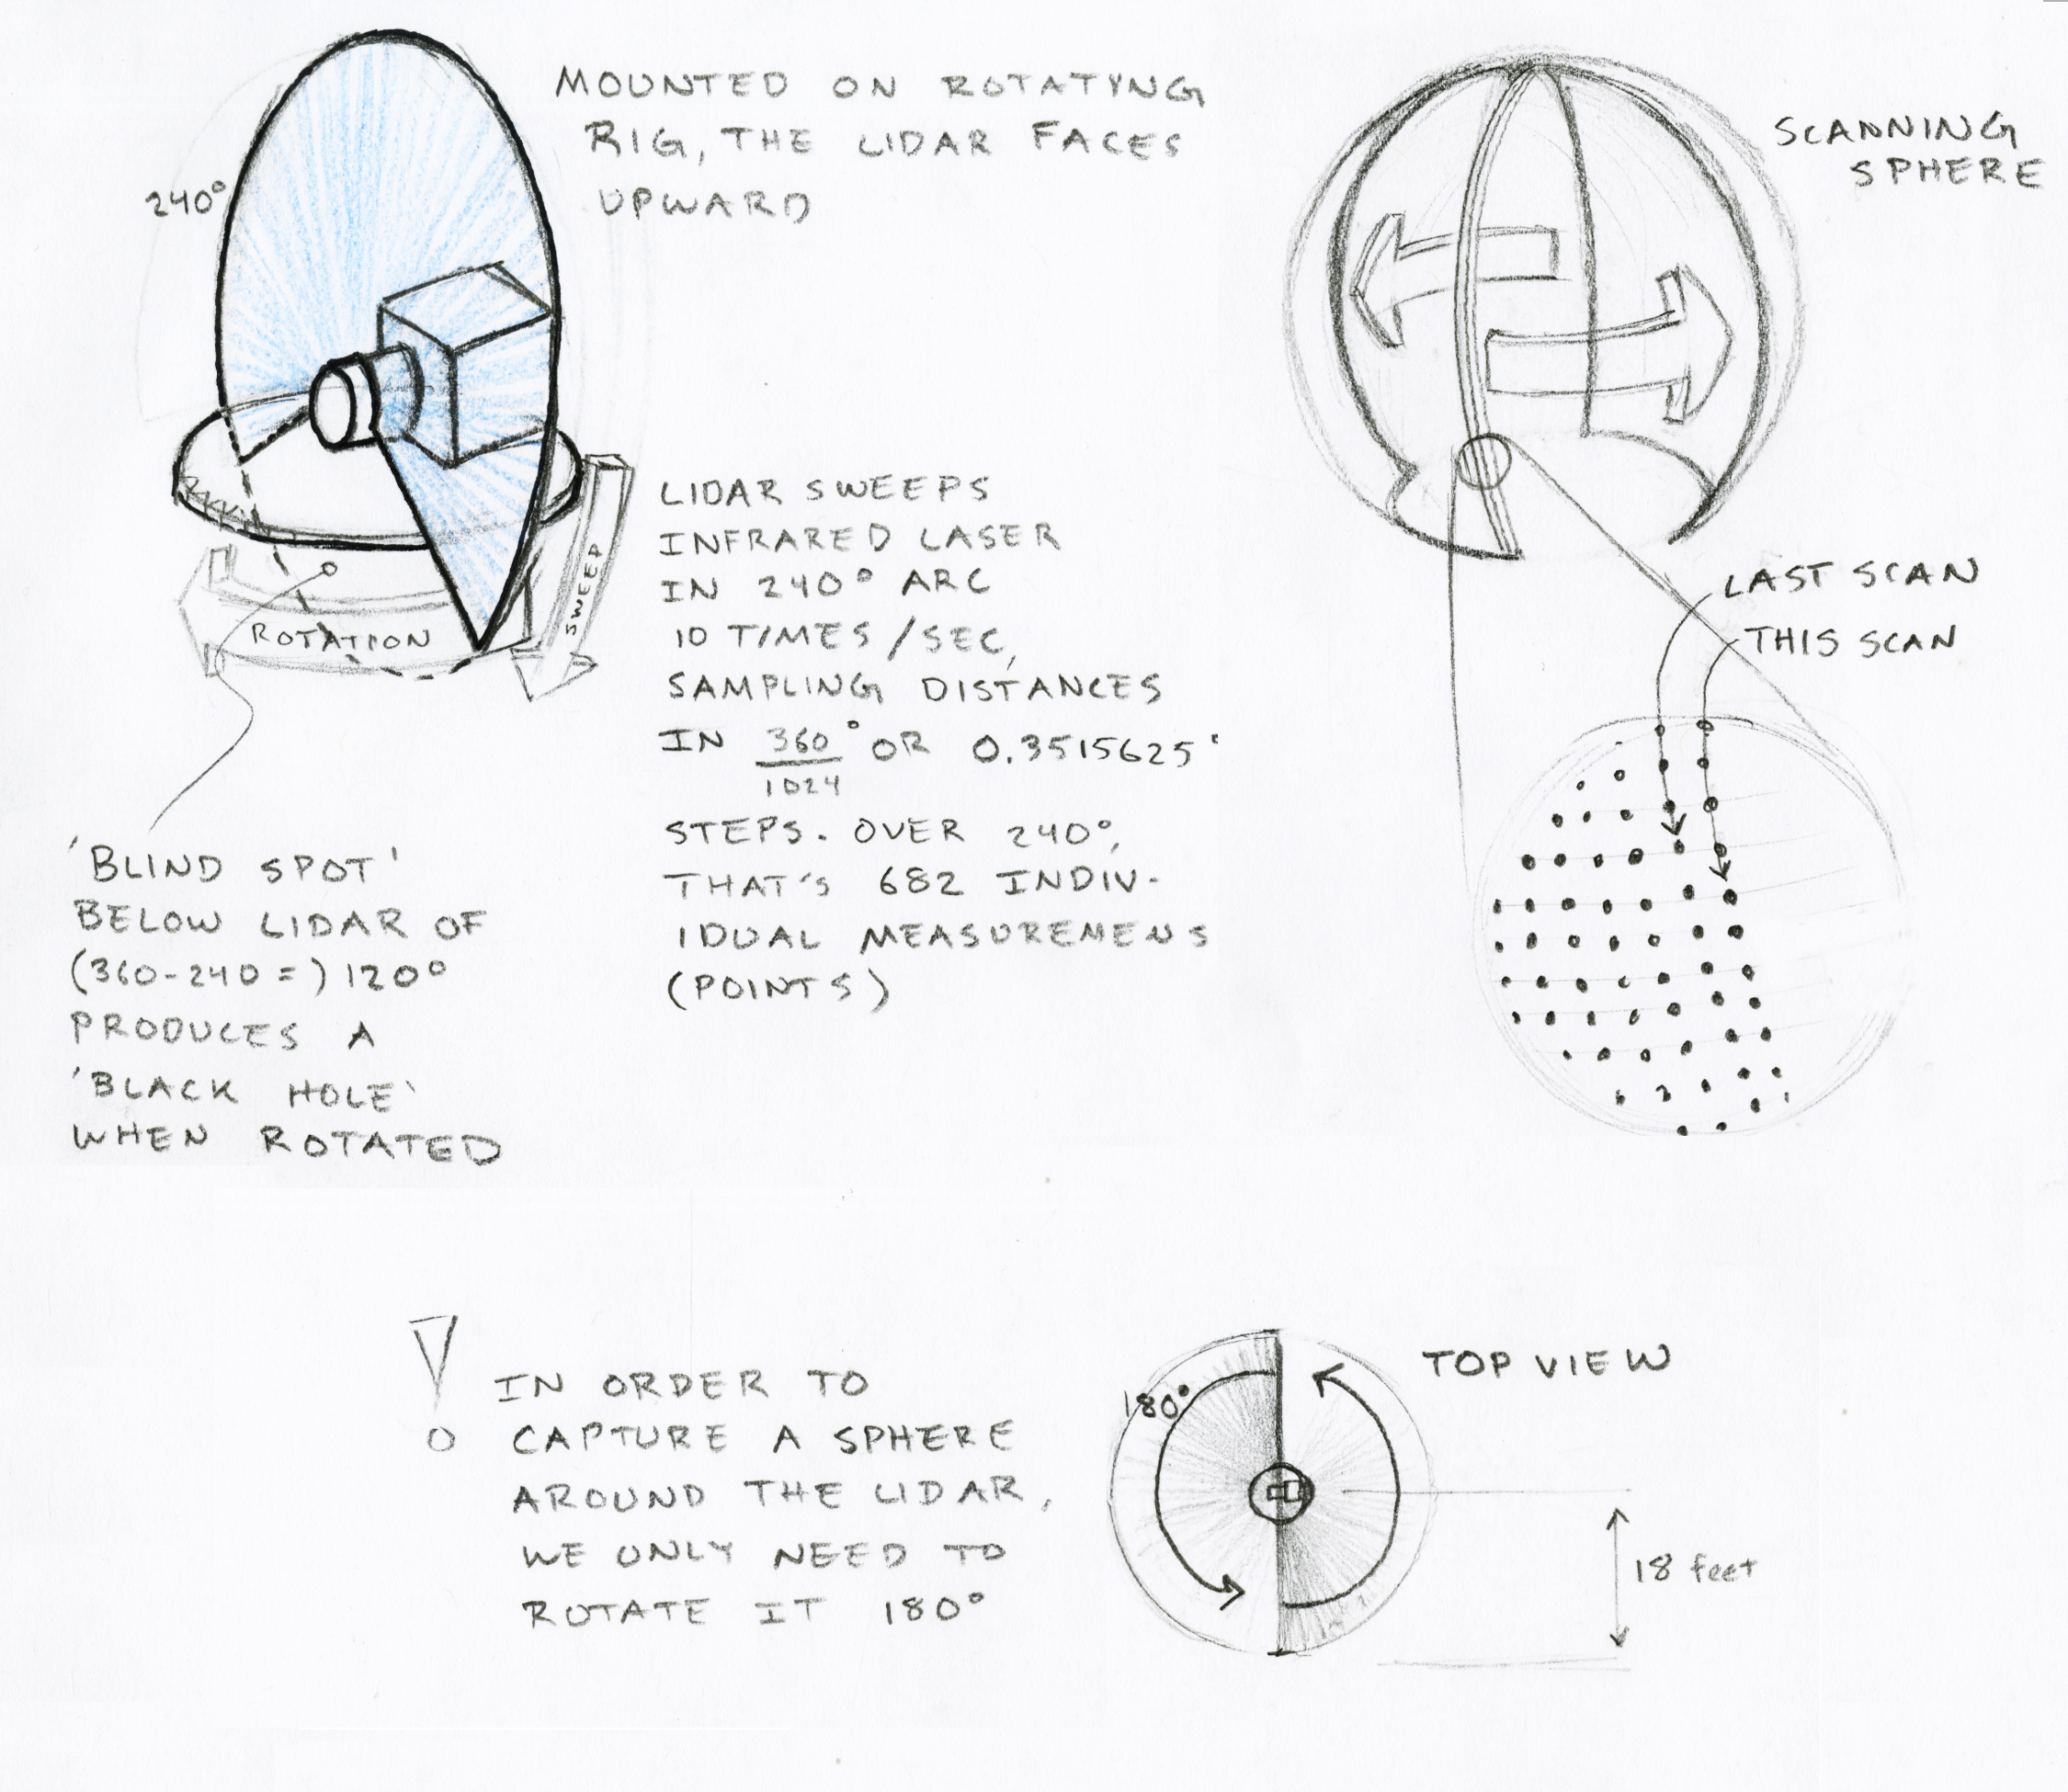 MOUNTED ON ROTATYNG
RIG, THE LIDAR FACES
UPWARD
240°
ROTATION
SWEEP
LIDAR SWEEPS
INFRARED LASER
IN 240° ARC
10 TIMES/SEC,
SAMPLING DISTANCES
IN 360/1024° OR 0.3515625°
STEPS. OVER 240°,
THAT'S 682 INDIV-
IDUAL MEASUREMENS
(POINTS)
'BLIND SPOT'
BELOW LIDAR OF
(360-240=) 120°
PRODUCES A
'BLACK HOLE'
WHEN ROTATED
SCANNING
SPHERE
LAST SCAN
THIS SCAN
! IN ORDER TO
CAPTURE A SPHERE
AROUND THE LIDAR,
WE ONLY NEED TO
ROTATE IT 180°
TOP VIEW
180°
18 feet